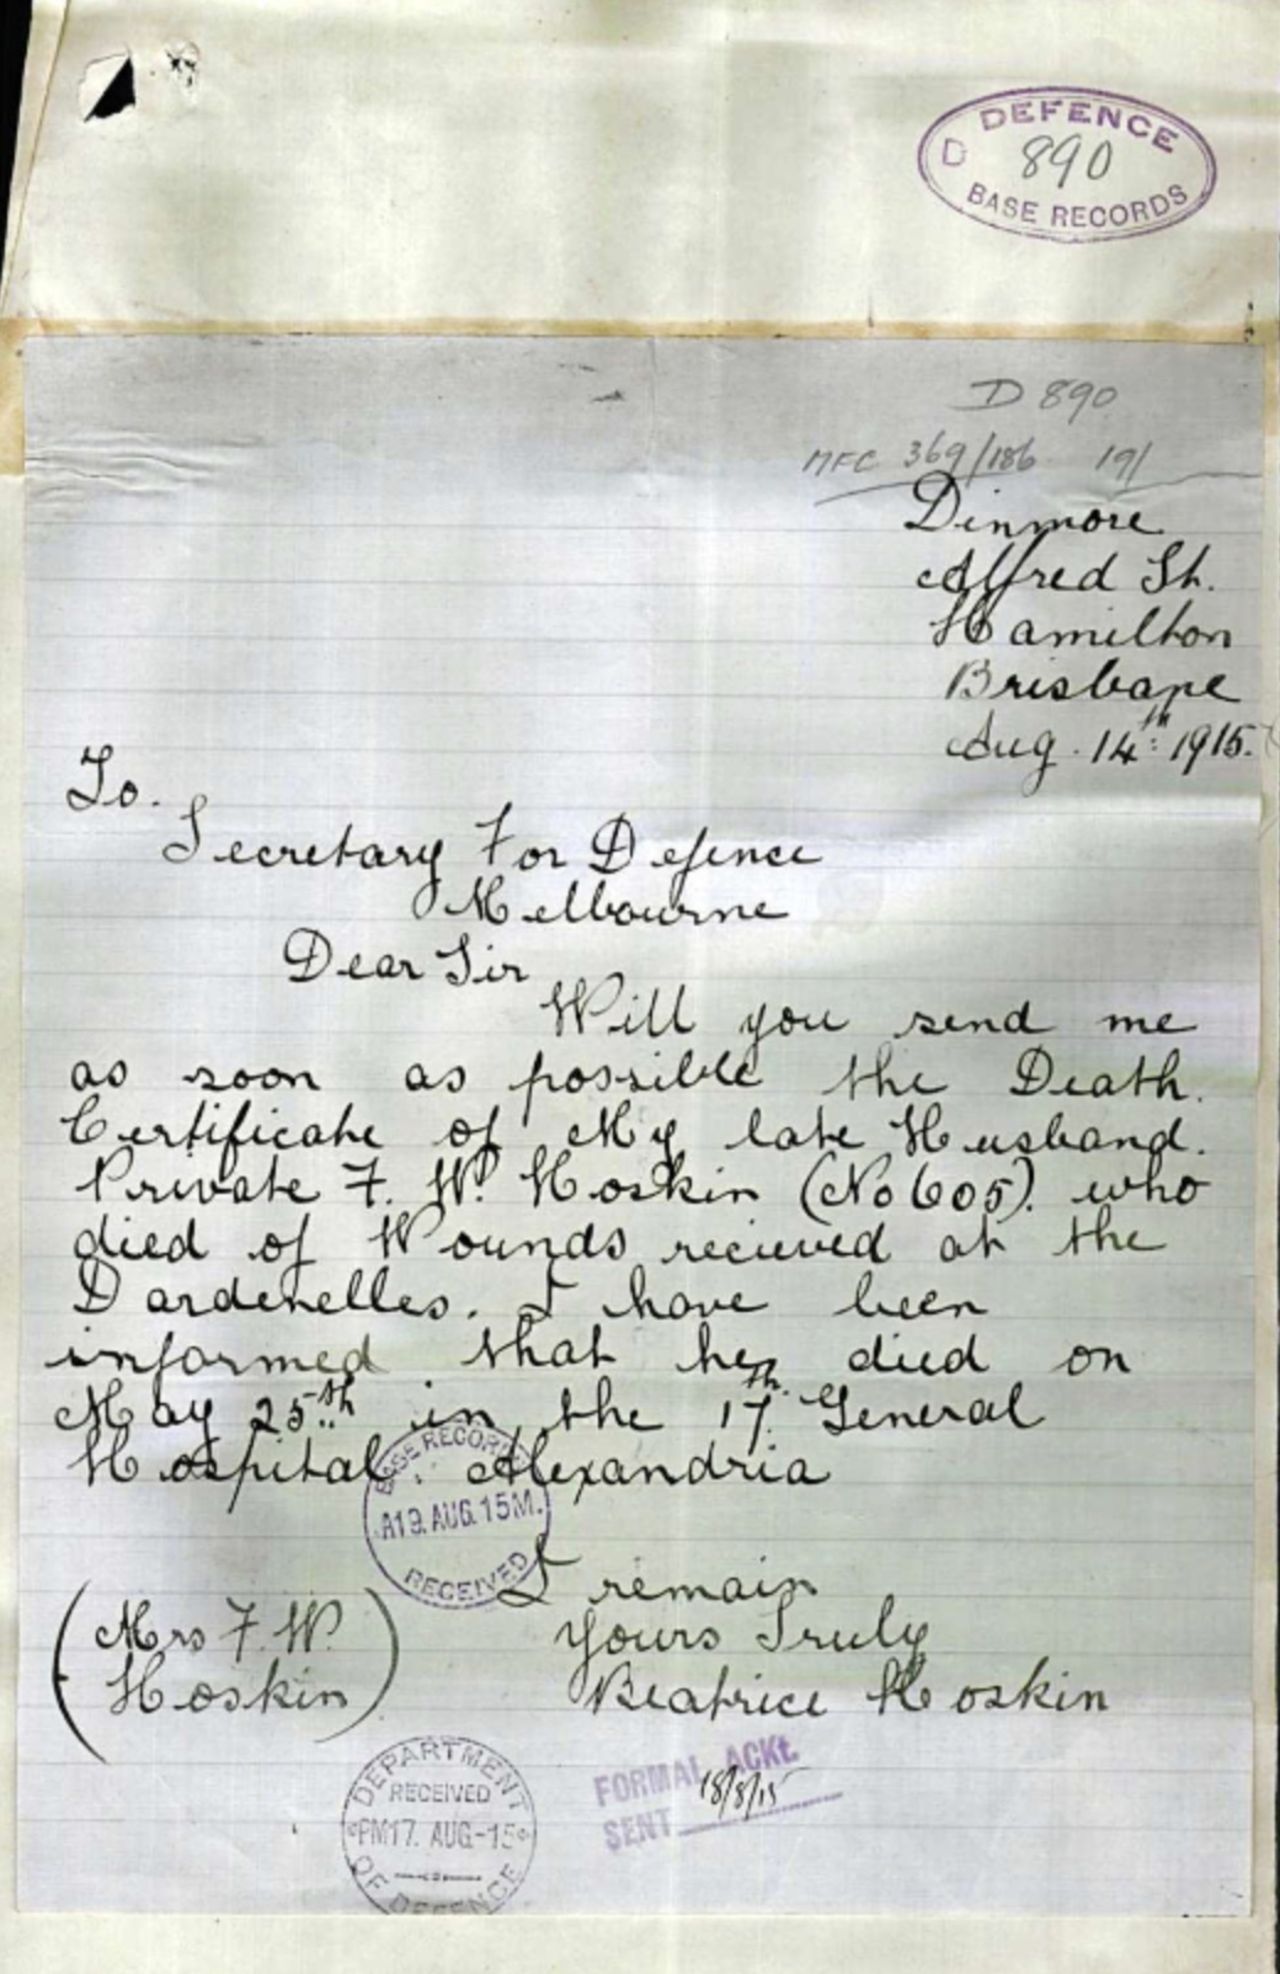 DEFENCE
D 890
BASE RECORDS
D 890
MFC 369/186 191
Dinmore
Alfred St.
Hamilton
Brisbane
Aug. 14th 1915.
To.
Secretary For Defence
Melbourne
Dear Sir
Will you send me
as soon as possible the Death.
Certificate of My late Husband.
Private F. W. Hoskin (No 605). who
died of Wounds recieved at the
Dardenelles. I have been
informed that he died on
May 25th in the 17th General
Hospital. Alexandria
BASE RECORDS
A19. AUG. 15M.
RECEIVED
I remain
(Mrs F. W. Yours Truly
Hoskin) Beatrice Hoskin
DEPARTMENT
RECEIVED
PM17. AUG-15
OF DEFENCE
FORMAL ACKt.
SENT 18/8/15